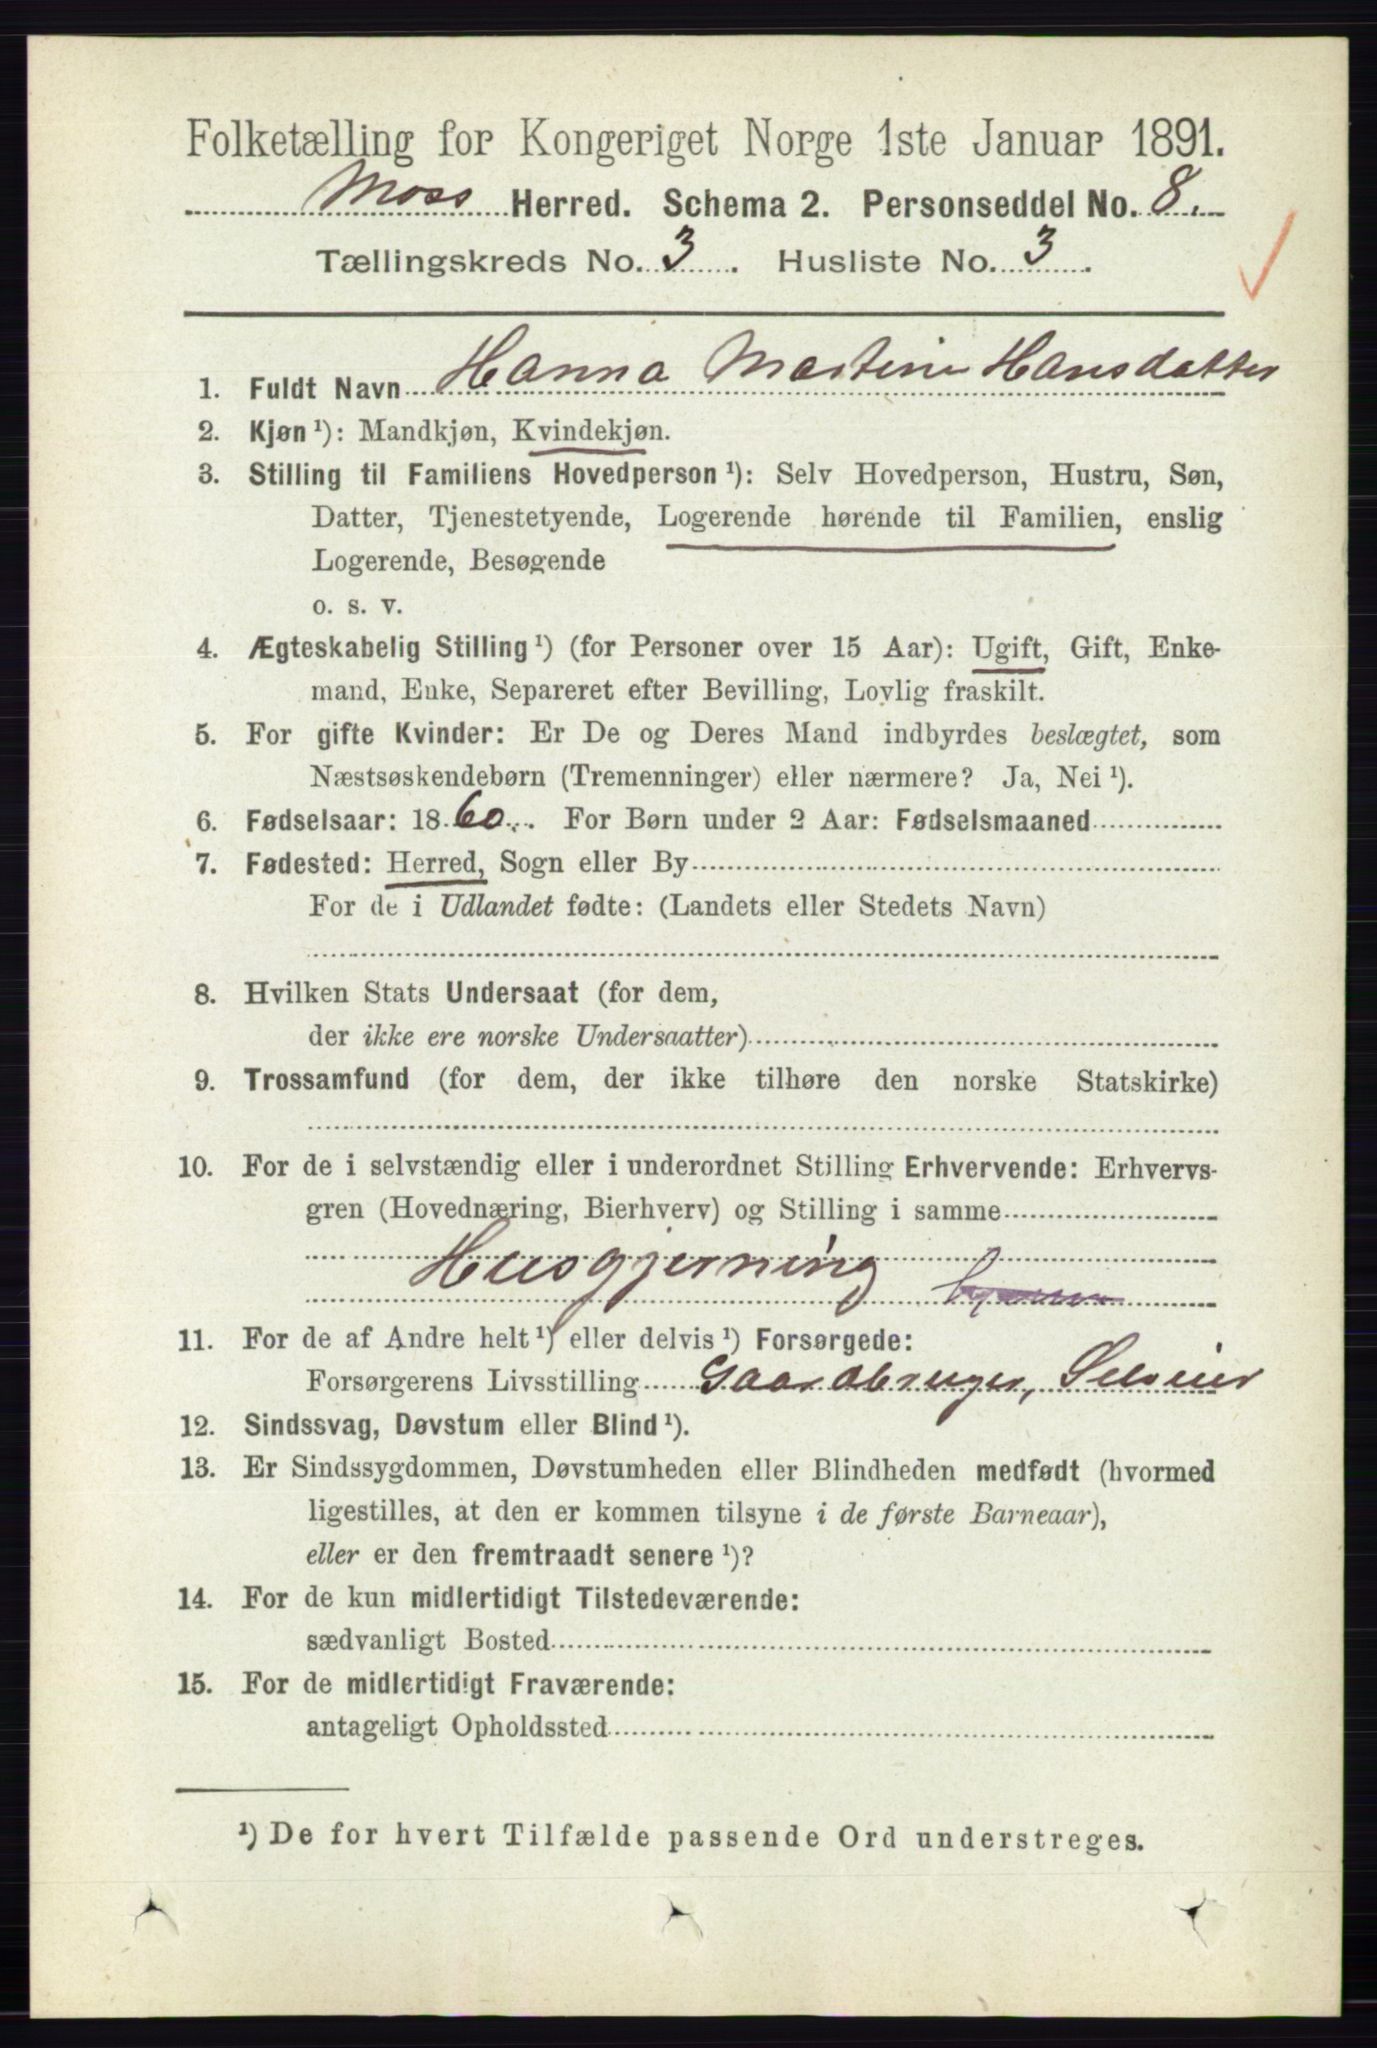 Folketælling for Kongeriget Norge 1ste Januar 1891.
Moss Herred. Schema 2. Personseddel No. 8.
Tællingskreds No. 3. Husliste No. 3.
1. Fuldt Navn Hanna Martine Hansdatter
2. Kjøn ¹): Mandkjøn, Kvindekjøn.
3. Stilling til Familiens Hovedperson ¹): Selv Hovedperson, Hustru, Søn,
Datter, Tjenestetyende, Logerende hørende til Familien, enslig
Logerende, Besøgende
o. s. v.
4. Ægteskabelig Stilling ¹) (for Personer over 15 Aar): Ugift, Gift, Enke-
mand, Enke, Separeret efter Bevilling, Lovlig fraskilt.
5. For gifte Kvinder: Er De og Deres Mand indbyrdes beslægtet, som
Næstsøskendebørn (Tremenninger) eller nærmere? Ja, Nei ¹).
6. Fødselsaar: 1860. For Børn under 2 Aar: Fødselsmaaned
7. Fødested: Herred, Sogn eller By
For de i Udlandet fødte: (Landets eller Stedets Navn)
8. Hvilken Stats Undersaat (for dem,
der ikke ere norske Undersaatter)
9. Trossamfund (for dem, der ikke tilhøre den norske Statskirke)
10. For de i selvstændig eller i underordnet Stilling Erhvervende: Erhvervs-
gren (Hovednæring, Bierhverv) og Stilling i samme
Husgjerning
11. For de af Andre helt ¹) eller delvis ¹) Forsørgede:
Forsørgerens Livsstilling Gaardbruger, Selveier
12. Sindssvag, Døvstum eller Blind ¹).
13. Er Sindssygdommen, Døvstumheden eller Blindheden medfødt (hvormed
ligestilles, at den er kommen tilsyne i de første Barneaar),
eller er den fremtraadt senere ¹)?
14. For de kun midlertidigt Tilstedeværende:
sædvanligt Bosted
15. For de midlertidigt Fraværende:
antageligt Opholdssted
¹) De for hvert Tilfælde passende Ord understreges.